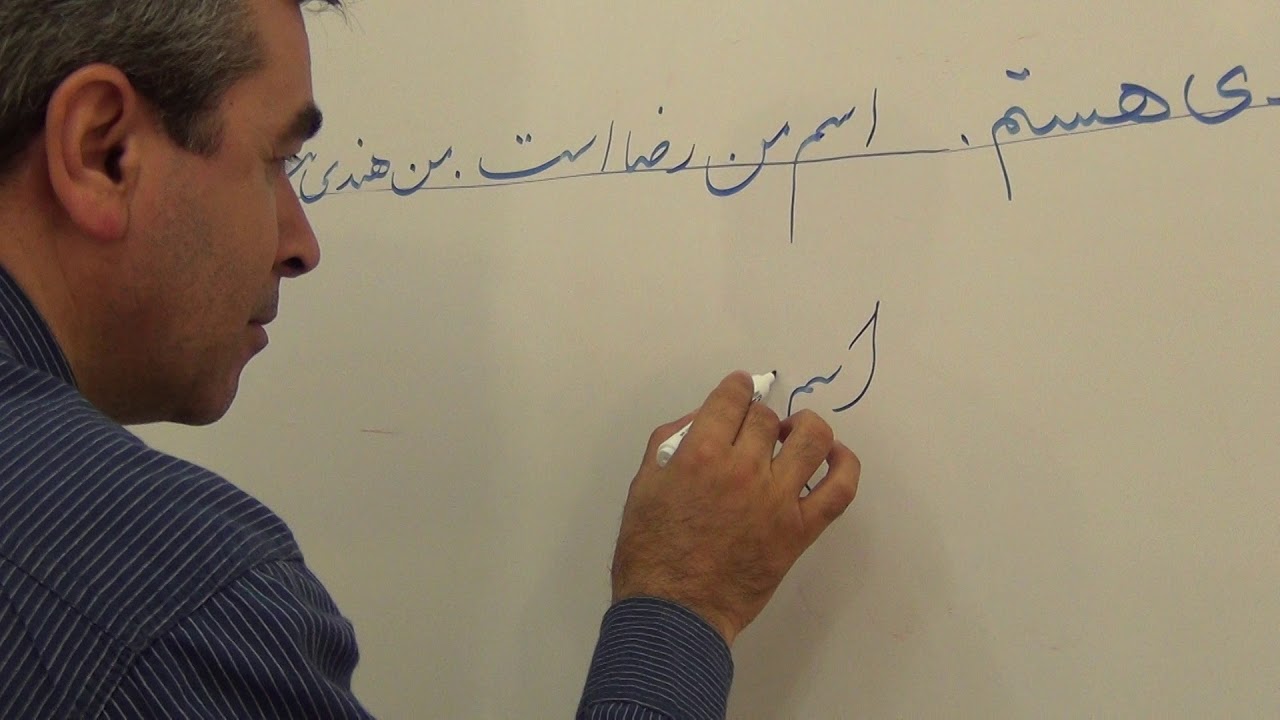 ی هستم. اسم من رضا است. من هندی
اسم